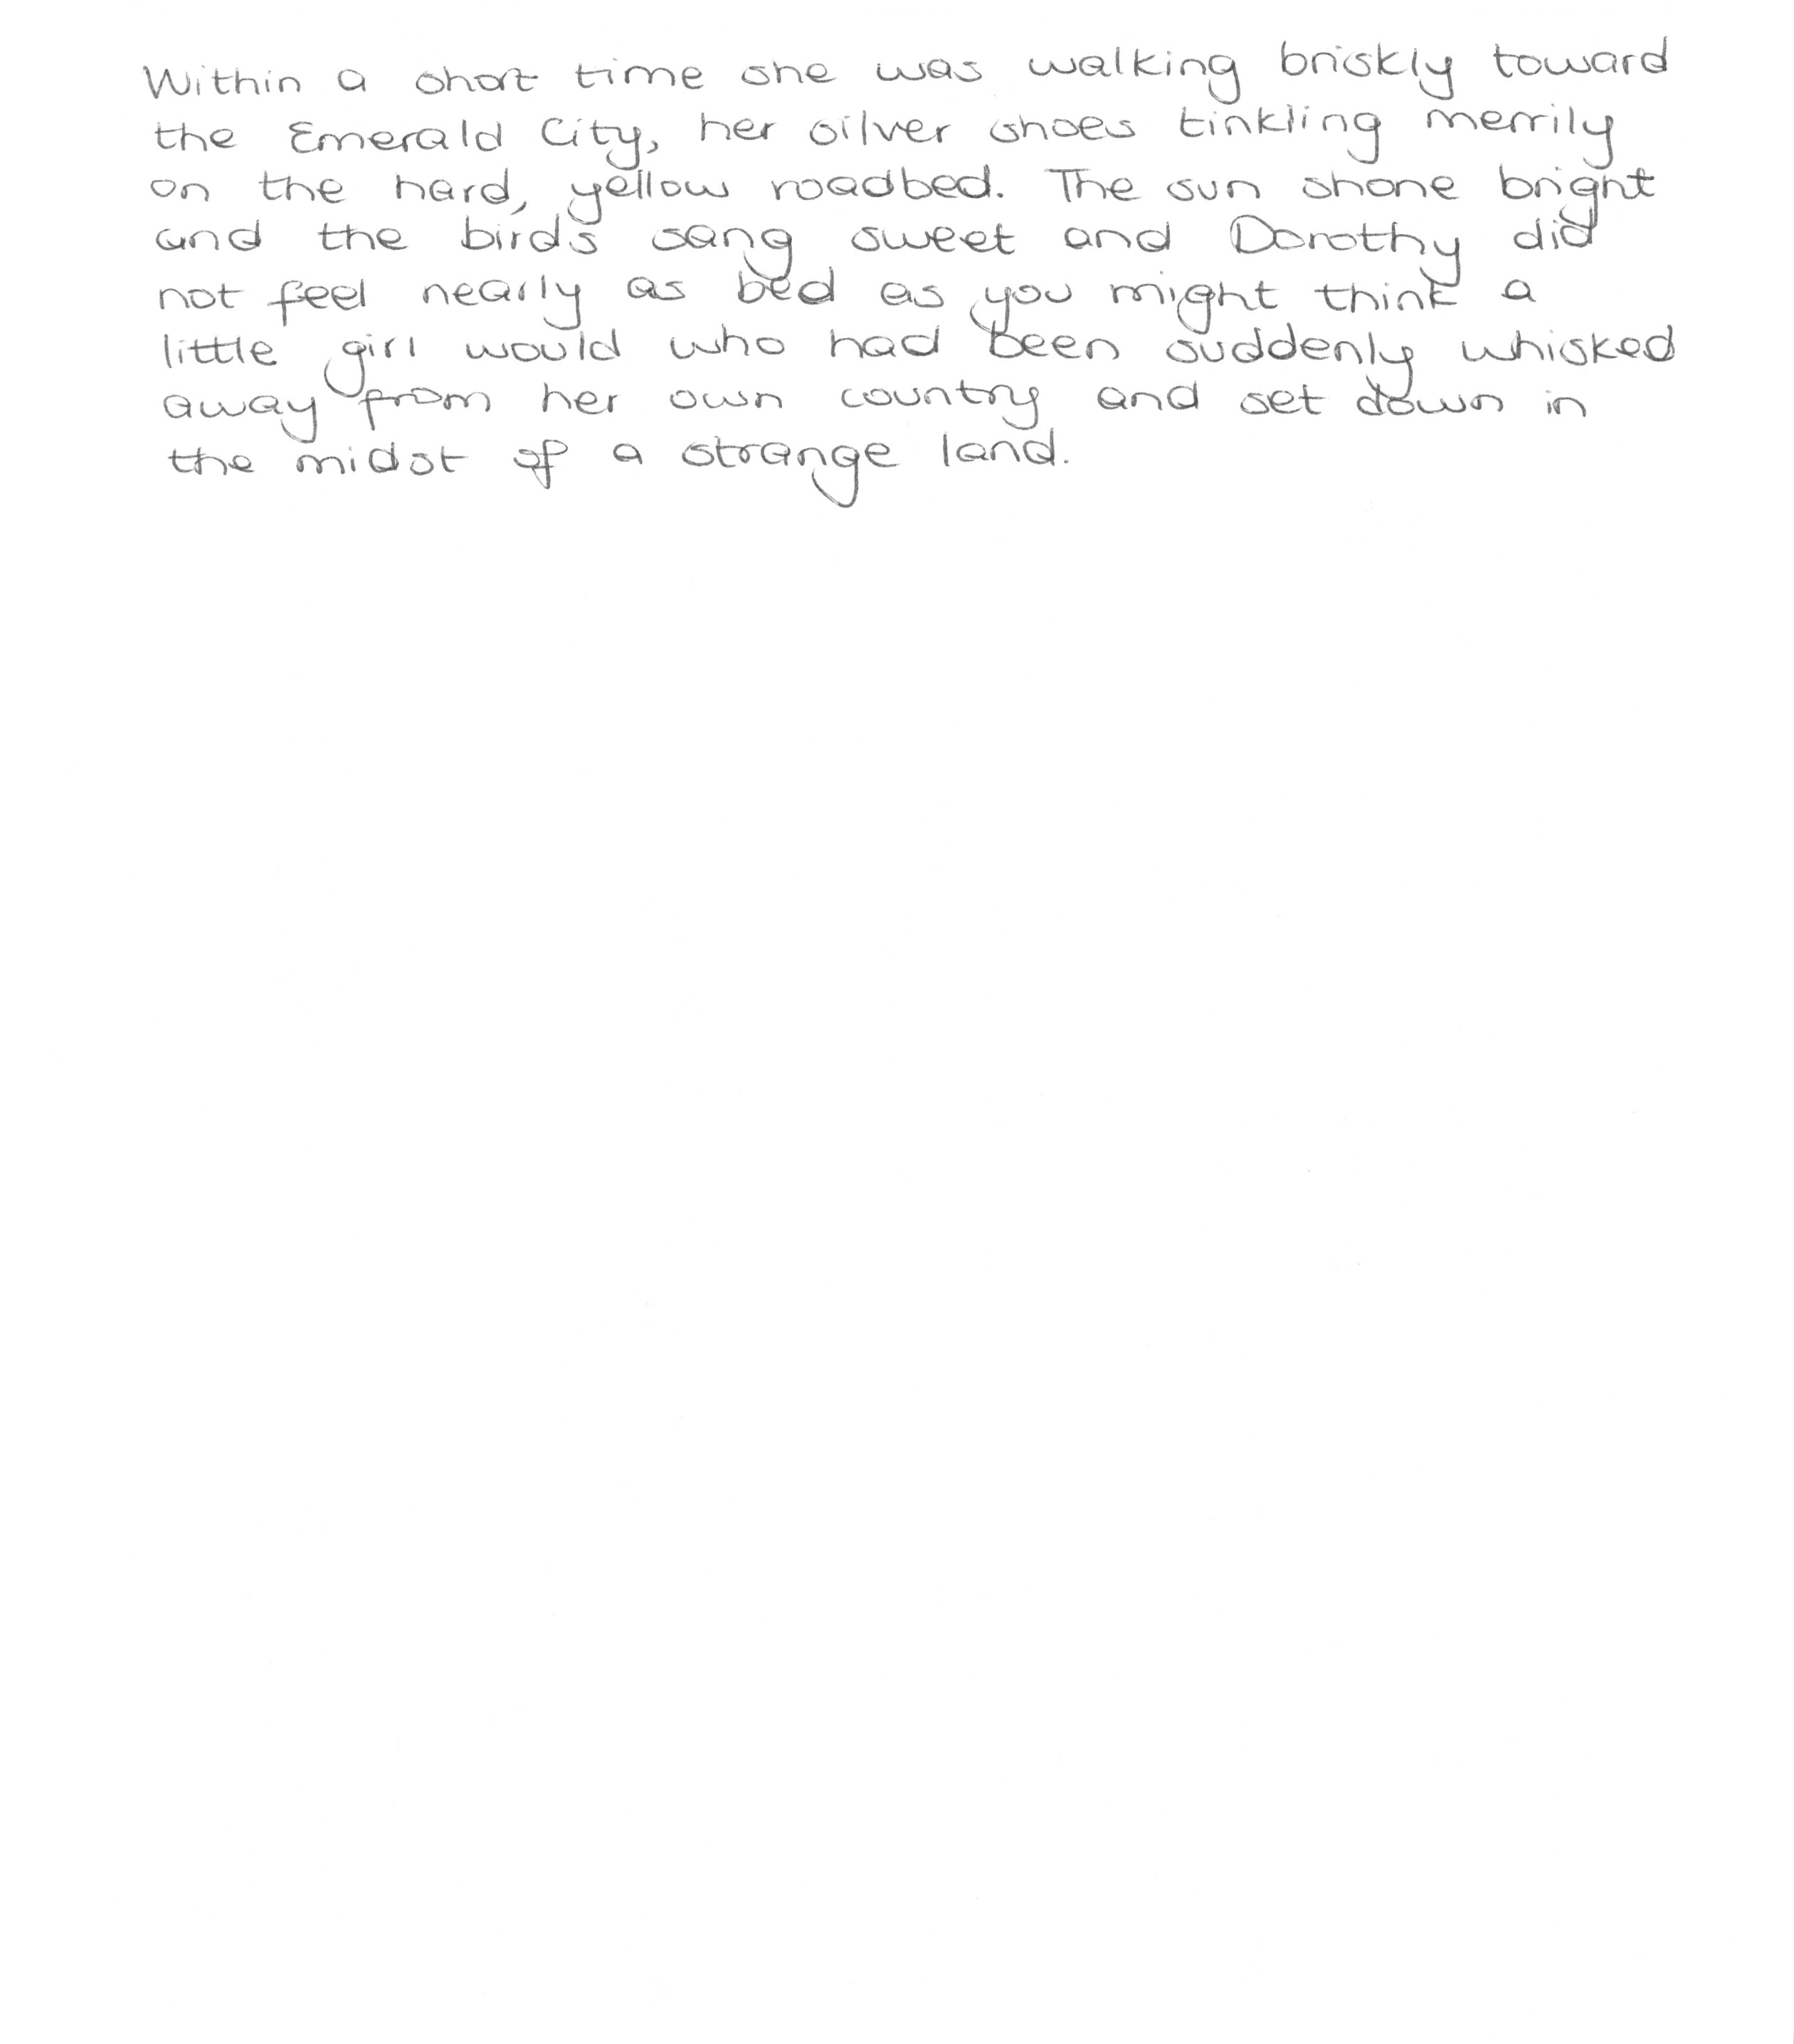 Within a short time she was walking briskly toward
the Emerald City, her silver shoes tinkling merrily
on the hard, yellow roadbed. The sun shone bright
and the birds sang sweet and Dorothy did
not feel nearly as bad as you might think a
little girl would who had been suddenly whisked
away from her own country and set down in
the midst of a strange land.